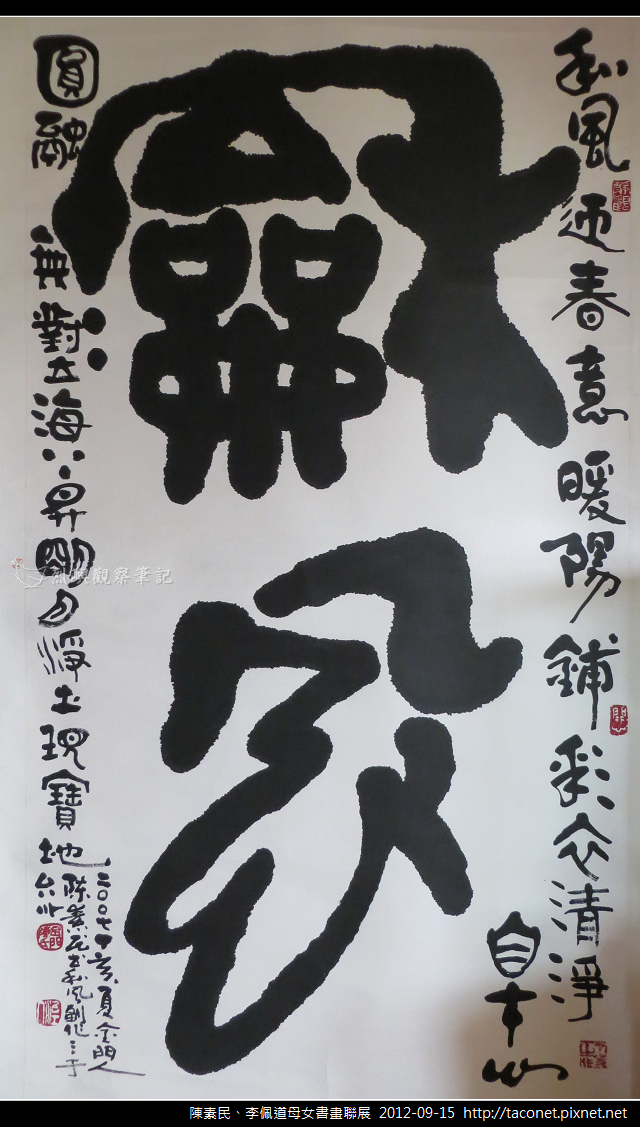 和風迎春意暖陽鋪彩衣清淨
自本心
龢
圓融無對立海昇明月淨土現寶地
二〇〇七丁亥夏金門人
陳素民書和風創作于
台北
烈嶼觀察筆記
陳素民、李佩道母女書畫聯展 2012-09-15 http://taconet.pixnet.net